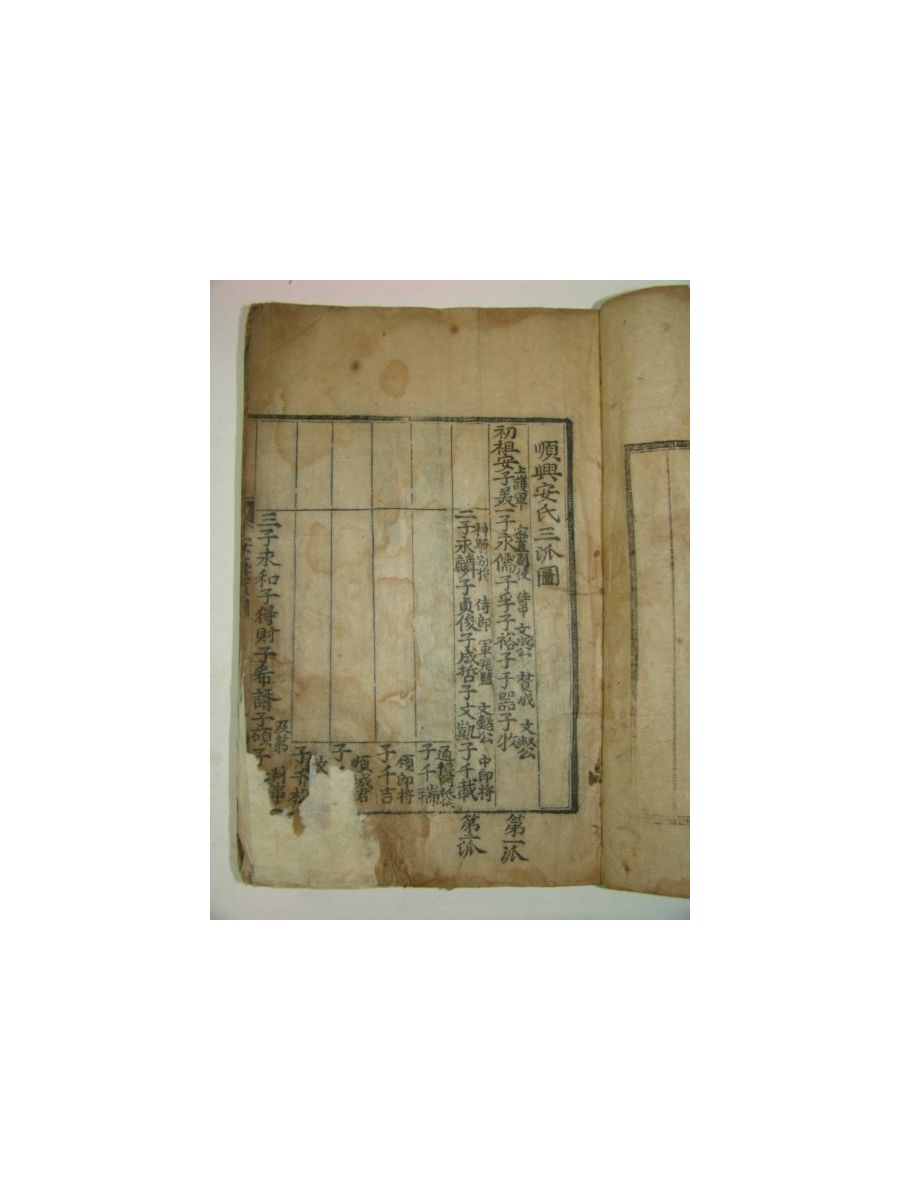 順興安氏三派圖
上護軍 密直副使 侍中文成公 贊成 文淑公
初祖安子美一子永儒子孚子裕子于器子牧
第一派
神騎別將 侍郎 軍器監 文懿公 中郎將
二子永麟子貞俊子成哲子文凱子千載
第二派
子千瑞
領郎將
子千吉
順城君
子
及第 判事
三子永和子得財子希諝子碩子